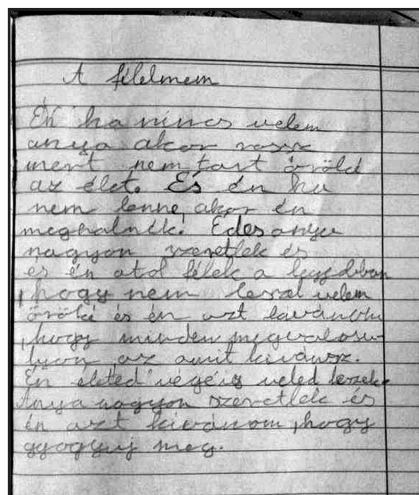 A félelmem
Én ha nincs velem
anya akor rossz
mert nem tart öröké
az élet. És én ha
nem lenne, akor én
meghalnék. Édesanya
nagyon szeretlek és
és én atol félek a legjobban
, hogy nem leszel velem
öröké és én azt kivánom
, hogy minden megvalosu-
lyon az amit kivánsz.
Én életed végéig veled leszek.
Anya nagyon szeretlek és
én azt kivánom, hogy
gyogyuj meg.